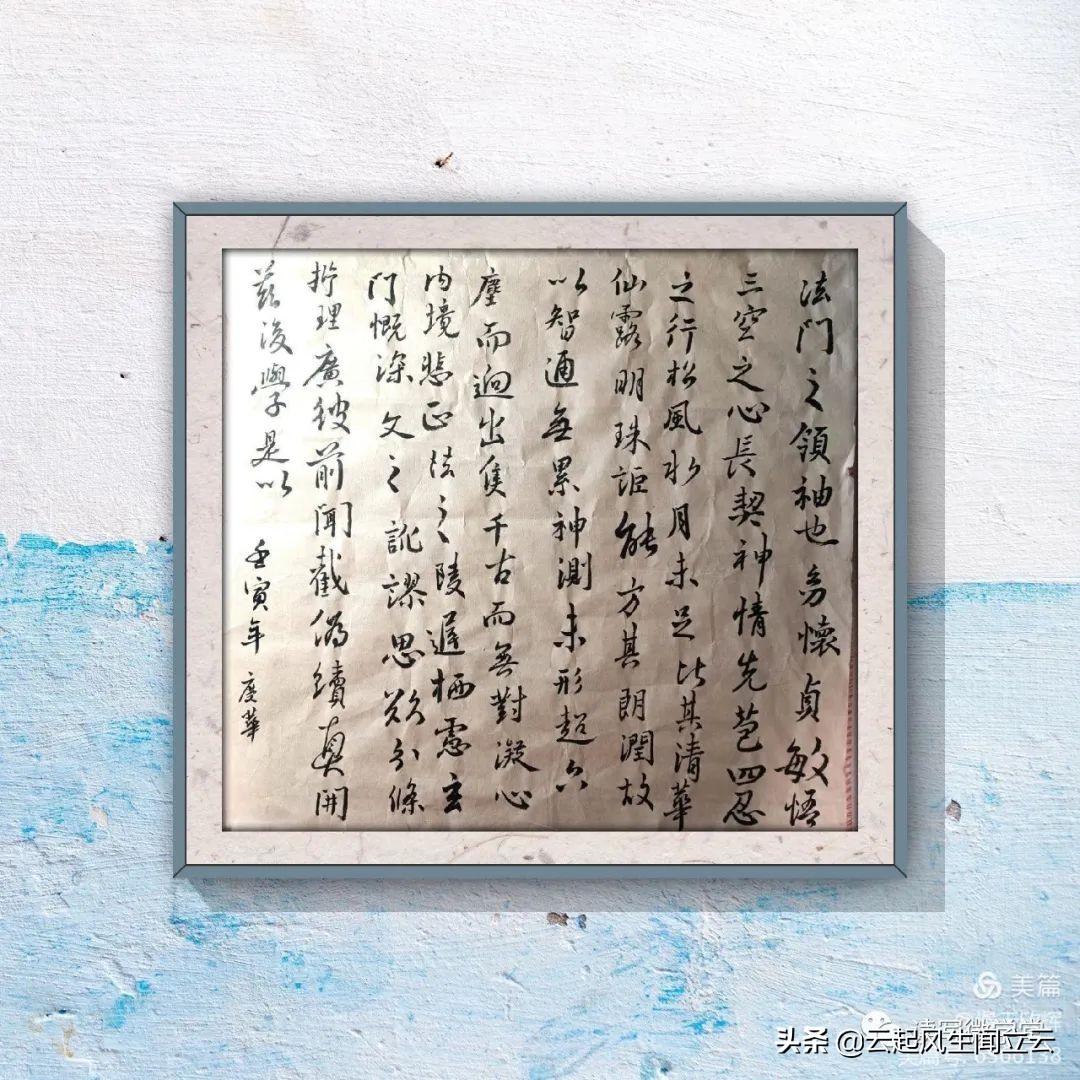 法門之領袖也幼懷貞敏悟
三空之心長契神情先苞四忍
之行松風水月未足比其清華
仙露明珠詎能方其朗潤故
以智通無累神測未形超六
塵而迥出隻千古而無對凝心
内境悲正法之陵遲栖慮玄
門慨深文之訛謬思欲分條
析理廣彼前聞截偽續真開
茲後學是以
壬寅年 度華
美篇
头条 @云起风生闻立云